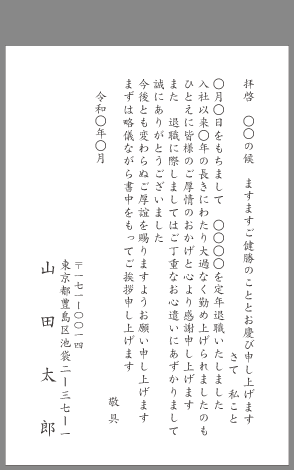 拝啓　〇〇の候　ますますご健勝のこととお慶び申し上げます
さて　私こと
〇月〇日をもちまして　〇〇〇〇を定年退職いたしました
入社以来〇年の長きにわたり大過なく勤め上げられましたのも
ひとえに皆様のご厚情のおかげと心より感謝申し上げます
また　退職に際しましてはご丁重なお心遣いにあずかりまして
誠にありがとうございました
今後とも変わらぬご厚誼を賜りますようお願い申し上げます
まずは略儀ながら書中をもってご挨拶申し上げます
敬具
令和〇年〇月
〒一七一ー〇〇一四
東京都豊島区池袋二ー三七ー一
山田太郎